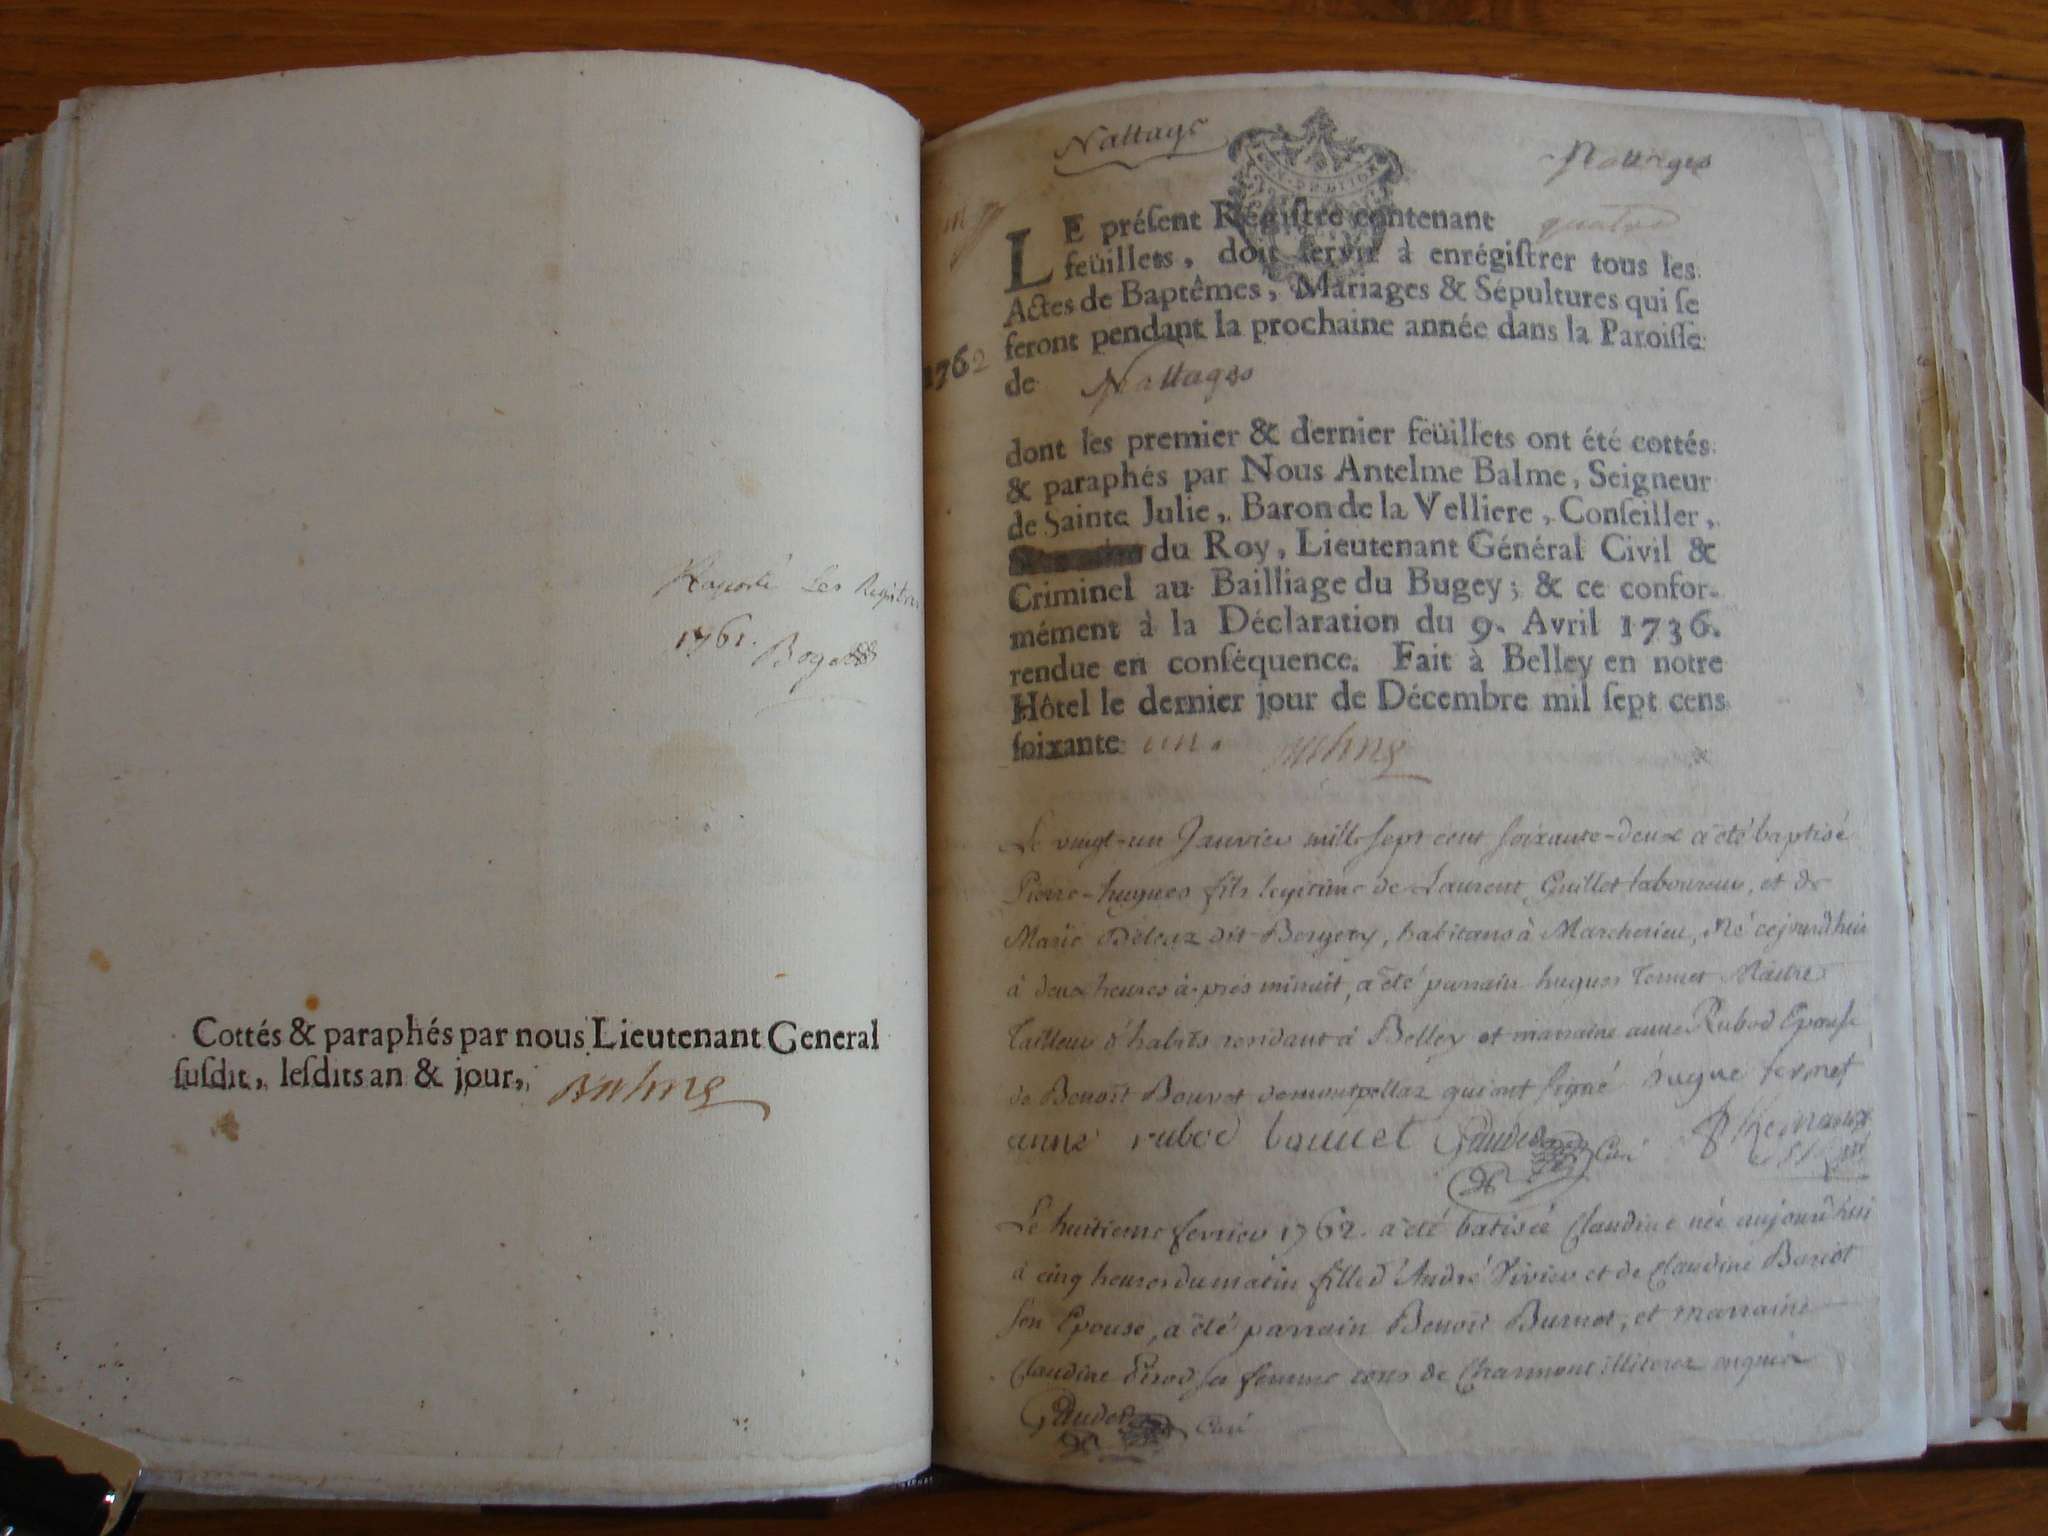 Raporté Les Registres
1761.
Cottés & paraphés par nous Lieutenant General
ſuſdit, leſdits an & jour,
Nattage
Nattages
LE préſent Régiſtre contenant quatre
feüillets, doit ſervir à enrégiſtrer tous les
Actes de Baptêmes, Mariages & Sépultures qui ſe
feront pendant la prochaine année dans la Paroiſſe
1762
de Nattages
dont les premier & dernier feüillets ont été cottés
& paraphés par Nous Antelme Balme, Seigneur
de Sainte Julie, Baron de la Velliere, Conſeiller,
du Roy, Lieutenant Général Civil &
Criminel au Bailliage du Bugey; & ce confor-
mément à la Déclaration du 9. Avril 1736.
rendue en conſéquence. Fait à Belley en notre
Hôtel le dernier jour de Décembre mil ſept cens
ſoixante un.
Le vingt-un Janvier mille sept cent soixante-deux a été baptisé
Pierre-hugues fils legitime de Laurent Guillot laboureur, et de
Marie dit habitans à Né cejourd'hui
à deux heures après minuit, a été parrain hugues Maitre
Tailleur d'habits résidant à Belley et marraine anne Rubod Epouse
de Benoît Bouvet qui ont signé hugue
anne rubod bouuet Curé
Le huitieme fevrier 1762. a été batisée Claudine née aujourd'hui
à cinq heures du matin fille d'André et de Claudine
son Epouse, a été parrain Benoit et marraine
Claudine sa femme tous de Charmont enquis
Curé